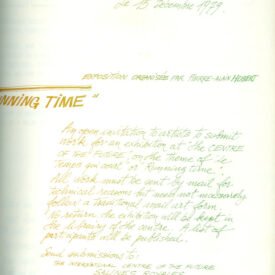 de 15 Decembre 1979.
EXPOSITION ORGANISÉE PAR PIERRE-ALAIN HUBERT
NNING TIME"
An open invitation to artists to submit
work for an exhibition at the CENTRE
OF THE FUTURE, on the theme of "le
Temps qui court" or "Running time".
All work must be sent by mail for
technical reasons but need not necessarily
follow a traditional mail art form.
No return the exhibition will be kept in
the library of the centre. A list of
participants will be published.
Send submissions to:
THE INTERNATIONAL CENTRE OF THE FUTURE